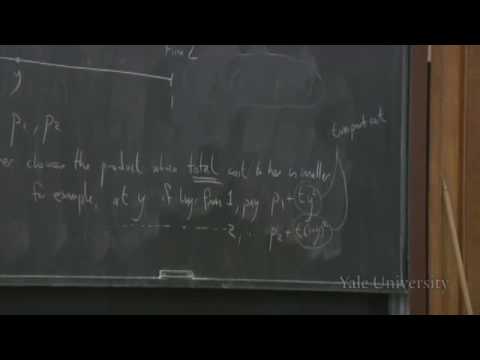 Firm 2
y
P₁, P₂
transport cost
er chooses the product whose total cost to her is smaller
for example, at y if buys from 1, pay P₁ + ty²
2, P₂ + t(1-y)²
Yale University